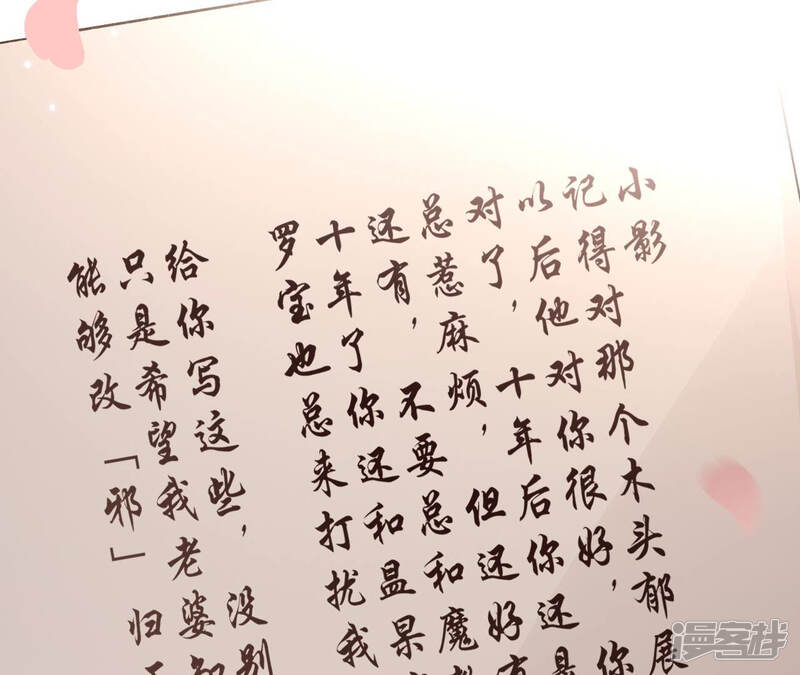 小影
记得对那个木头郁展
以后他对你很好，你
对了，十年后你还是
总惹麻烦，但还好有
还有，不要总和魔
十年了你还和昷果
罗宝也总来打扰我
给你写这些，没别
只是希望我老婆
能够改「邪」归
漫客栈